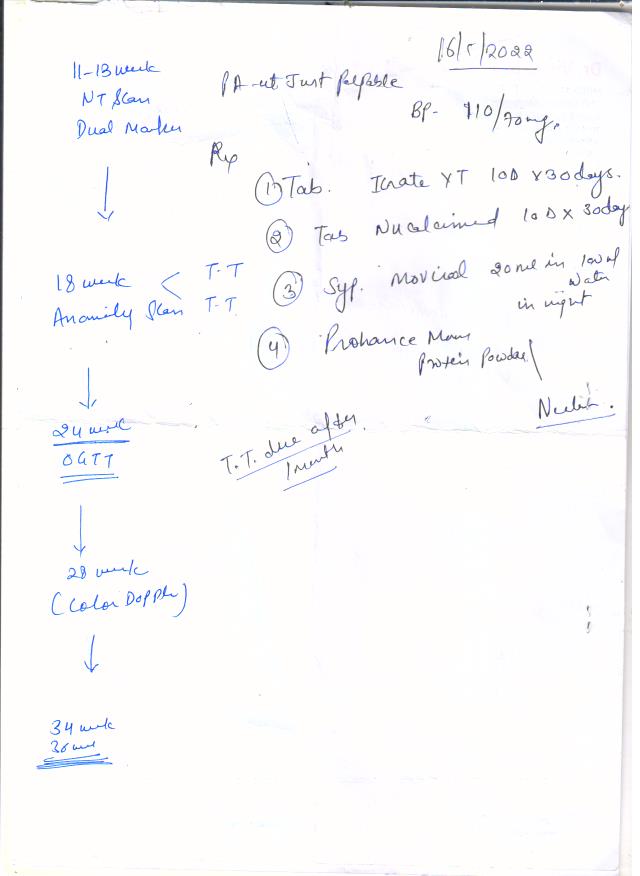 16/5/2022
11-13 week
NT Scan
Dual Marker
PA - ut Just Palpable
BP- 110/70mg.
Rx
① Tab. Icrate XT 1OD x 30days.
② Tab Nucalcimed 1OD x 30day
③ Syp. Movical 20ml in
Water
in night
④ Prohance Mom
Protein Powder
18 week < T.T
Anamily Scan T.T
24 week
OGTT
T.T. due after
1month
28 week
(Color Doppler)
34 week
36 week